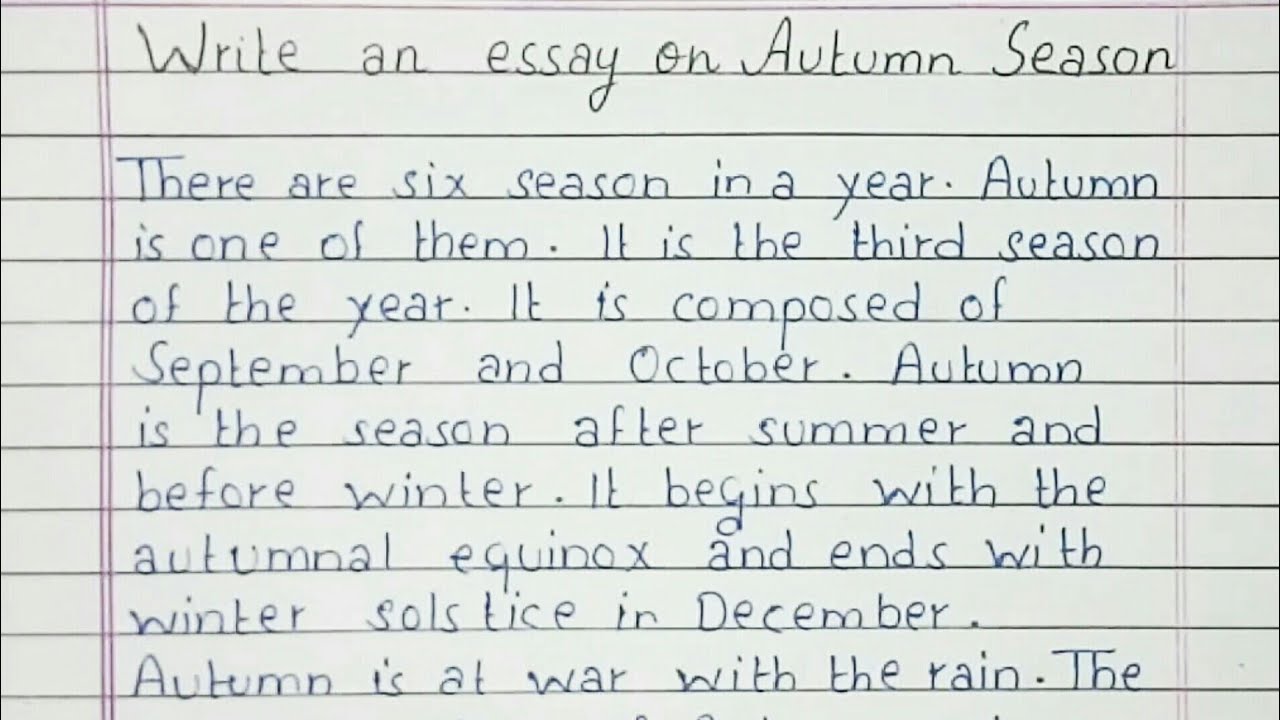 Write an essay on Autumn Season
There are six season in a year. Autumn
is one of them. It is the third season
of the year. It is composed of
September and October. Autumn
is the season after summer and
before winter. It begins with the
autumnal equinox and ends with
winter solstice in December.
Autumn is at war with the rain. The